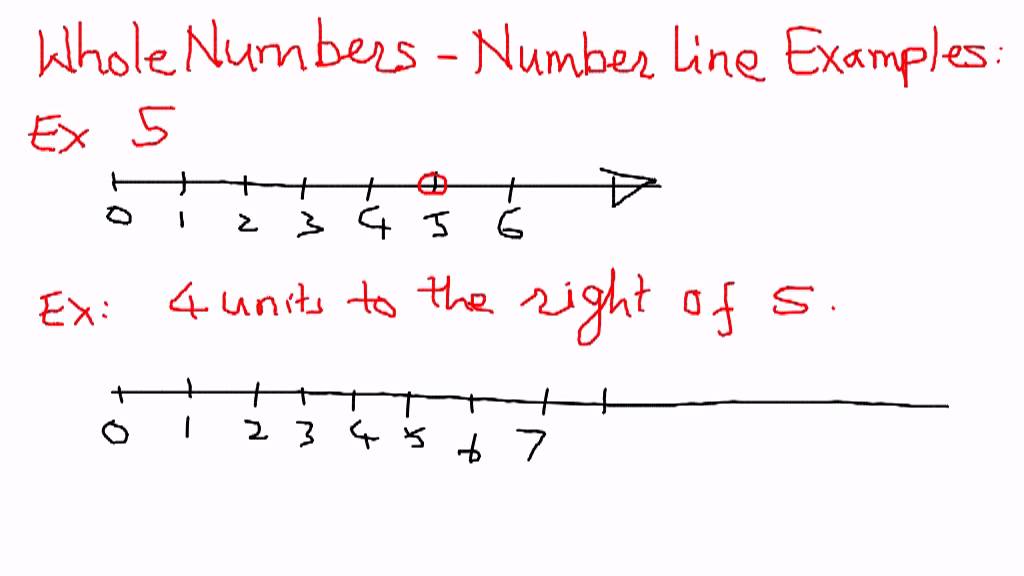 Whole Numbers - Number Line Examples:
Ex 5
0 1 2 3 4 5 6
Ex: 4 units to the right of 5.
0 1 2 3 4 5 6 7